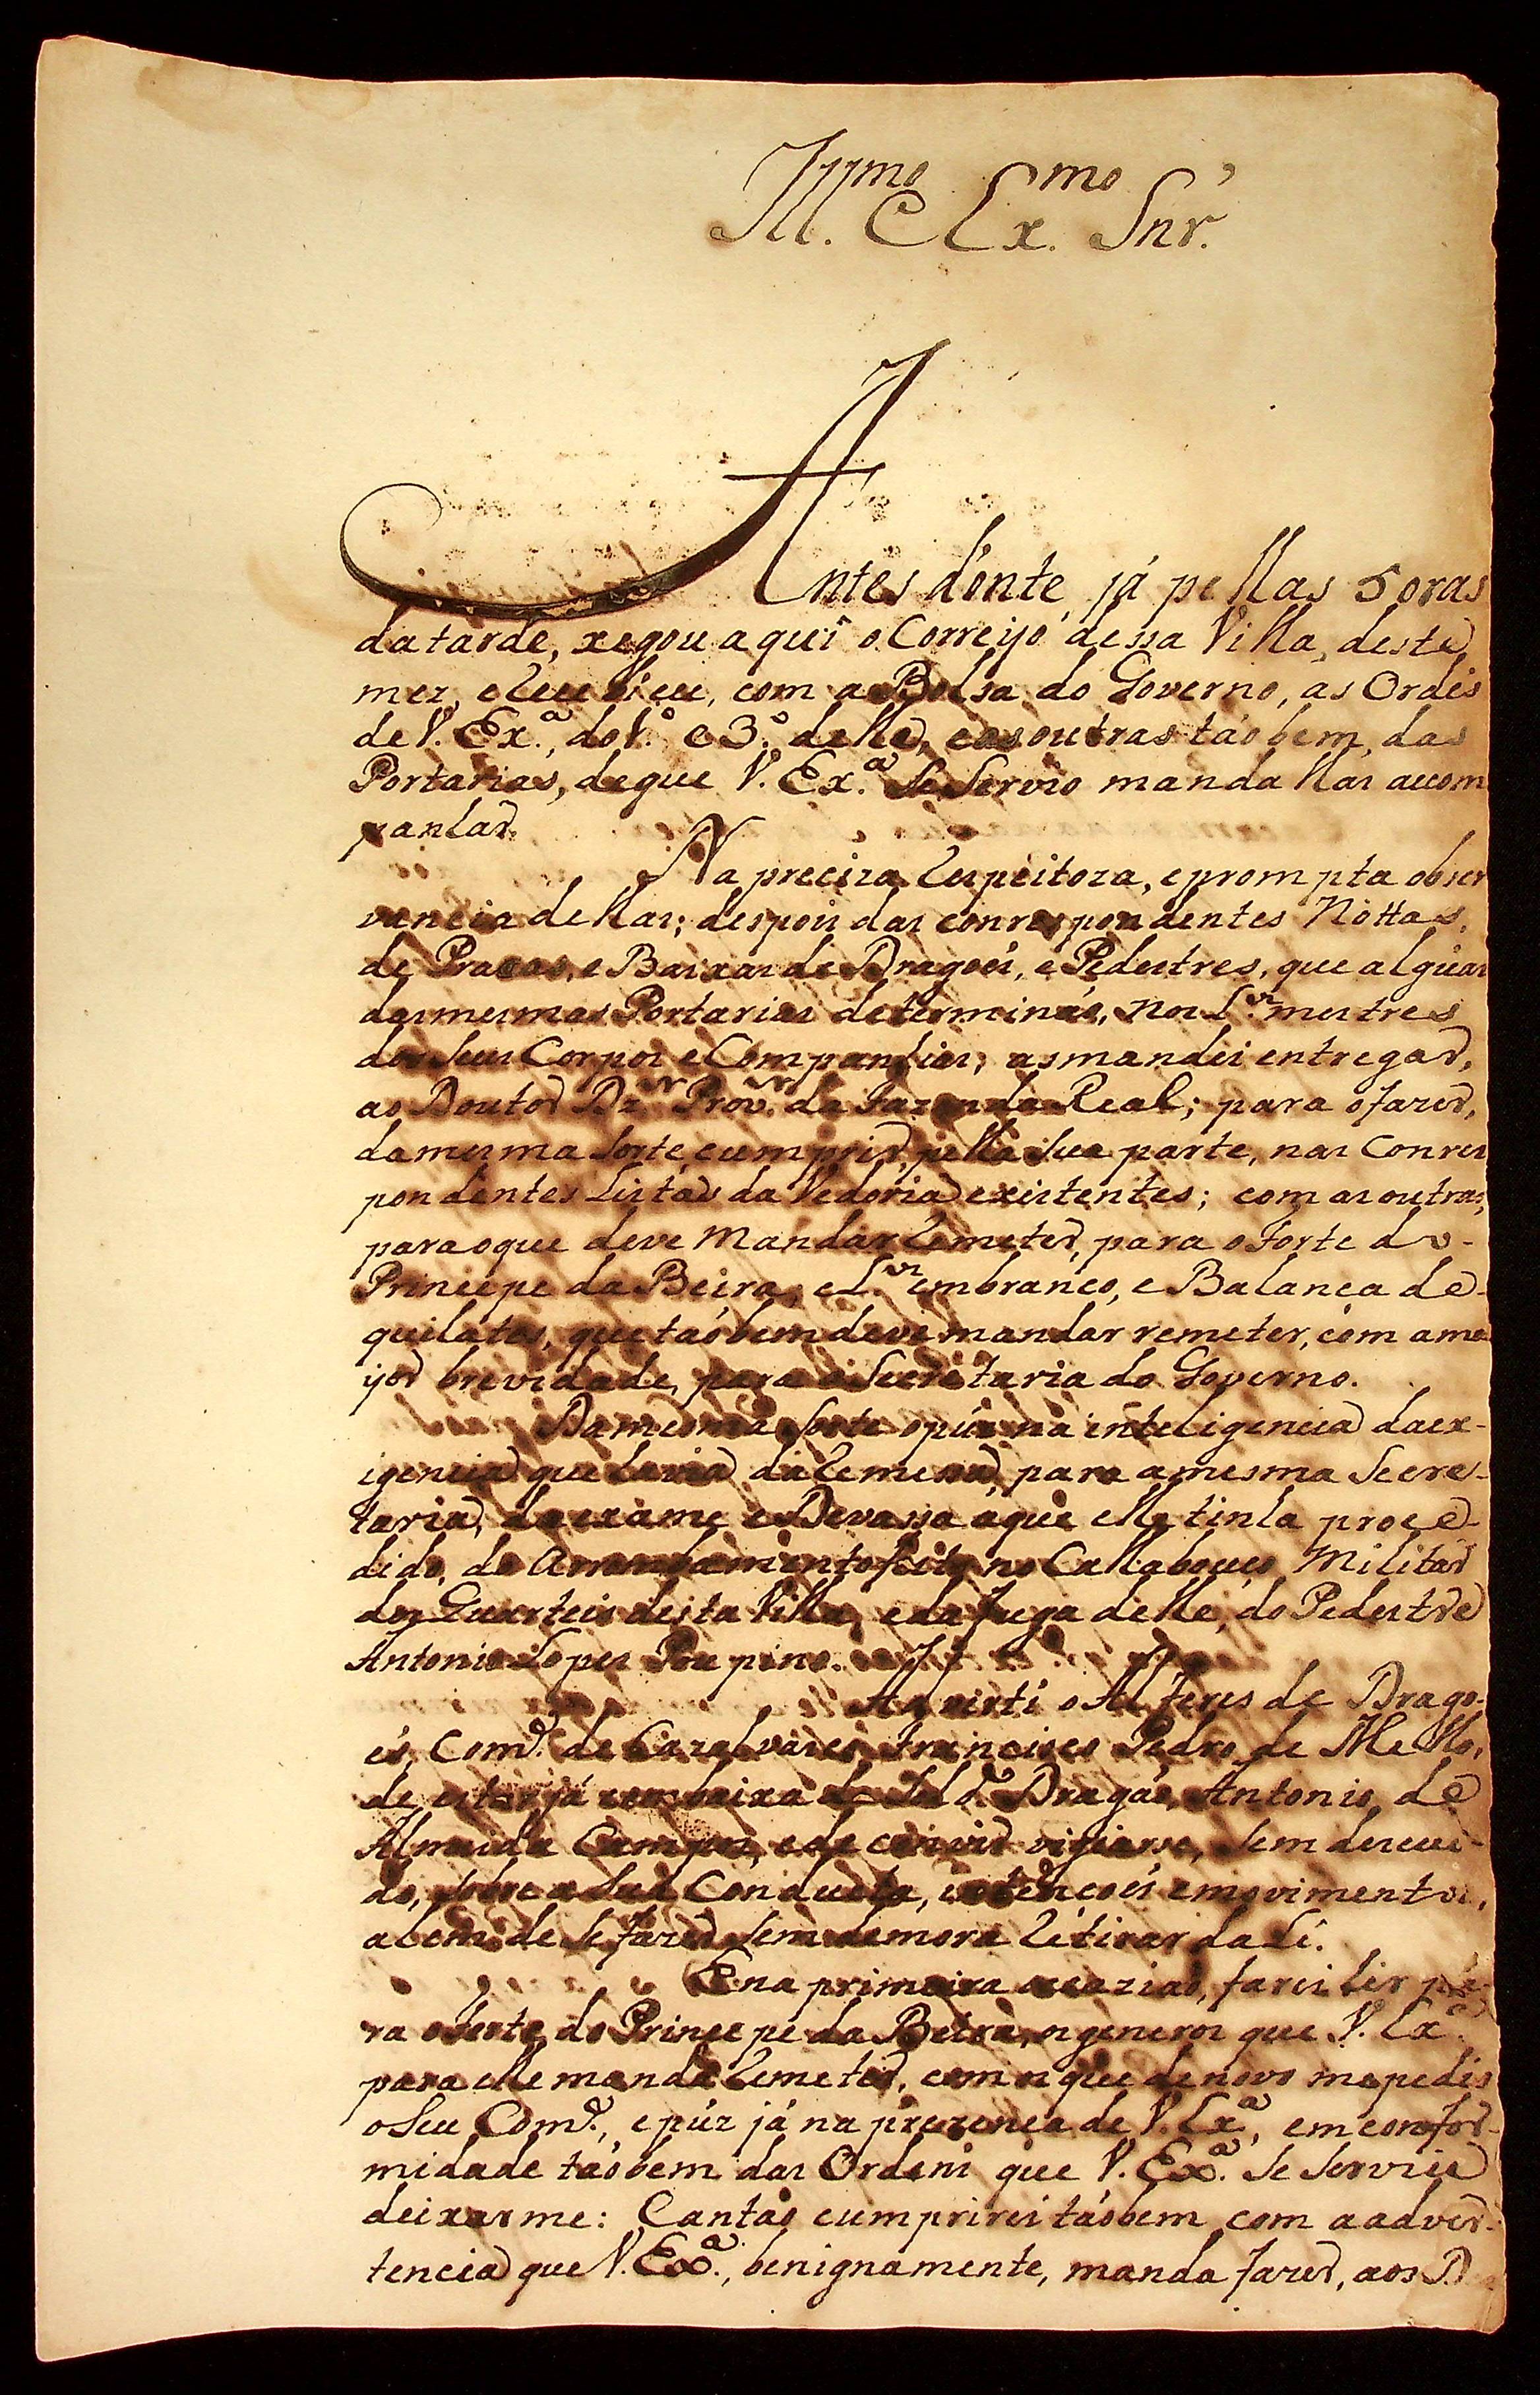 Ill.mo e Ex.mo Snr.
Antes d'ònte, já pellas 5 oras
da tarde, xegou aqui o Correyo dessa Villa, deste
mez, e Recebi eu, com a Bolsa do Governo, as Ordẽs
de V. Ex.ª, do 1.º e 3.º delle, e as outras táobem, das
Portarias, de que V. Ex.ª Se Servio mandallas acom
panhar.
Na preciza Respeitoza, e prompta obser
vancia dellas; despois das conrespondentes Nottas,
de Pracas, e Baixas de Dragoẽs, e Pedestres, que algũas
das mesmas Portarias determinaó, nos L.os mestres
dos Seus Corpos e Companhias; as mandei entregar,
ao Doutor Prov.or da Fazenda Real; para o fazer,
da mesma Sorte, cumprir, pella Sua parte, nas Conres
pondentes Listas da Vedoria existentes; com as outras,
para o que deve Mandar Remeter, para o Forte do
Principe da Beira, e L.os em branco, e Balanca de
quilates, que taóbem deve mandar remeter, com a ma
yor brevidade, para a Secretaria do Governo.
Da mesma Sorte o púz na inteligencia da ex-
igencia que havia da Remessa, para a mesma Secre-
taria, do exame e Devassa a que elle tinha proce-
dido, do Arrombamento feito no Callabouço Militar
dos Quarteis desta Villa, e da fuga delle, do Pedestre
Antonio Lopes Poupino.
Advirtí o Alferes de Drago-
ẽs, Com.e de Cazalvasco, Francisco Pedro de Mello,
de estar já com baixa de Sold.o Dragaó, Antonio de
Almeida Campos, e de vigiarse, Sem descui-
do, Sobre a Sua Conducta, intençoẽs e movimentos,
alem de Se fazer Sem demora Retirar dahi.
E na primeira occaziaó, farei hir pa-
ra o Forte do Principe da Beira, os generos que V. Ex.ª
para elle manda Remeter, com os que de novo me pedio
o Seu Com.e, e púz já na prezenca de V. Ex.ª, em confor-
midade taóbem das Ordens que V. Ex.ª Se Servio
deixarme: E antaó cumprirei taóbem com a adver-
tencia que V. Ex.ª, benignamente, manda fazer, aos